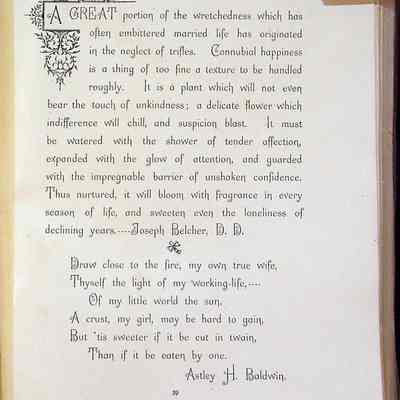 A GREAT portion of the wretchedness which has
often embittered married life has originated
in the neglect of trifles. Connubial happiness
is a thing of too fine a texture to be handled
roughly. It is a plant which will not even
bear the touch of unkindness; a delicate flower which
indifference will chill, and suspicion blast. It must
be watered with the shower of tender affection,
expanded with the glow of attention, and guarded
with the impregnable barrier of unshaken confidence.
Thus nurtured, it will bloom with fragrance in every
season of life, and sweeten even the loneliness of
declining years.----Joseph Belcher, D. D.
Draw close to the fire, my own true wife,
Thyself the light of my working-life,----
Of my little world the sun,
A crust, my girl, may be hard to gain,
But 'tis sweeter if it be cut in twain,
Than if it be eaten by one.
Astley H. Baldwin.